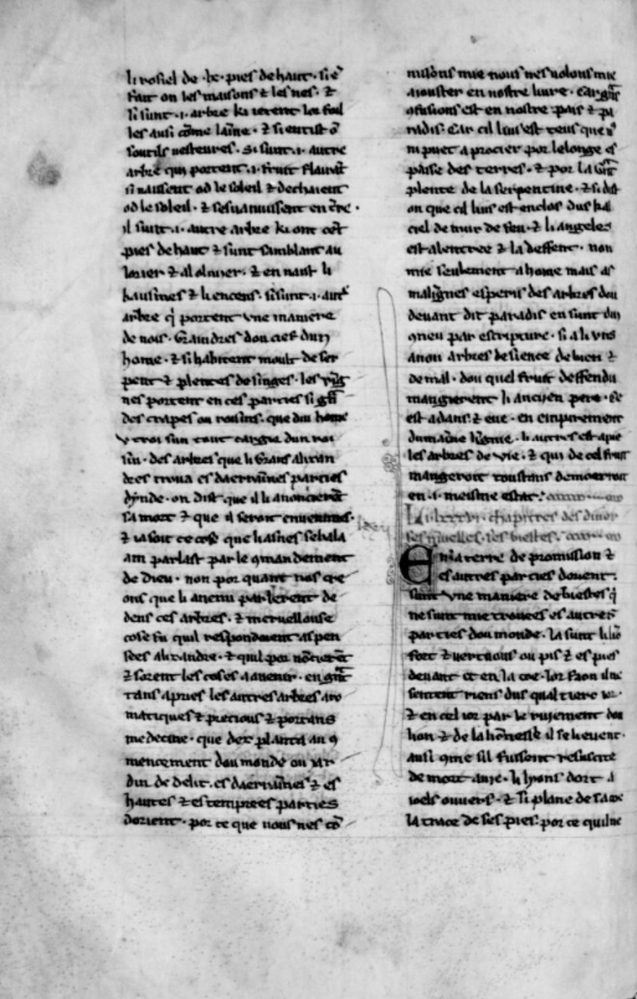 li rosiel de .lx. pies de haut. si e
fait on les maisons ⁊ les nes. ⁊
si sunt .i. arbre ki
les ausi cōme laine. ⁊ si en ist ō
soutils uesteures. Si sunt .i. autre
arbre qui portent .i. fruit flairāt
si naissent od le soleil ⁊ dechaient
od le soleil. ⁊ sesuanuissent en tr̄e.
il sunt .i. autre arbre ki ont cēt
pies de haut ⁊ sunt samblant au
lorier ⁊ al oliuier. ⁊ en naist li
basmes ⁊ li encens. si sunt .i. aut̄
arbre q̄ portent vne maniere
de nois. Graindres dou cief dun
home. ⁊ si habitent moult de ser
pent ⁊ plentes de singes. les vīg
nes portent en ces parties si gn̄s
des crapes ou roisins. que diu home
sin. des arbres que li Grans alixan
dres troua es daerraines parties
dynde. on dist que il li anoncierēt
sa mort ⁊ que il seroit enuenimes.
⁊ ia soit ce cose que li asnes sebala
am parlast par le 9mandement
de dieu. non por quant nos cre
ons que li anemi parlerent de
dens ces arbres. ⁊ meruellouse
cose fu quil respondirent as pen
sees alixandre. ⁊ quil por noncierēt
⁊ sorent les coses a auenir. en gn̄t
tans apries les autres arbres aro
matiques ⁊ precious ⁊ portans
medecine. que dex planta au 9
mencement dou monde ou iar
din de delit. es daerraines ⁊ es
hautes ⁊ es temprees parties
dorient. por ce que nous nes cō
nissons mie nous nes uolons mie
aiouster en nostre liure. Car gn̄s
9fusions est en nostre pais ⁊ pa
radis. Car cil lius est teus que n
ni puet aprocier por le longe es
passe des terres. ⁊ por la gn̄t
plente de la serpentine. ⁊ si dist
on que cil lius est enclos dus ka
ciel de mur de feu. ⁊ li angeles
est al entree ⁊ la deffent. non
mie seulement a home mais as
malignes esperis des arbres dou
deuant dit paradis en sunt dui
9neu par escripture. si a li uns
a non arbres de sience de bien ⁊
de mal. dou quel fruit deffendu
mangierent li ancyen pere. ce
est adans ⁊ eue. en empirement
dumaine lignie. li autres est apie
les arbres de vie. ⁊ qui de cel fruit
mangeroit toustans demorroit
en .i. meisme estat.
chapitres des diuer
ses bestes.
En la terre de promission ⁊
es autres parties dorient.
sunt vne maniere de biestes q̄
ne sunt mie trouees es autres
parties dou monde. la sunt li liō
fort ⁊ vertuous ou pis ⁊ es pies
deuant et en la coe. lor faon dne
sentent riens dus qual tierc ior.
⁊ en cel ior par le ruiement dou
lion ⁊ de la lionesse il se lieuent.
ausi 9me sil fussent resuscite
de mort a uie. li lyons dort a
ioels ouuers. ⁊ si plane de sa coe
la trace de ses pies. por ce quil ne